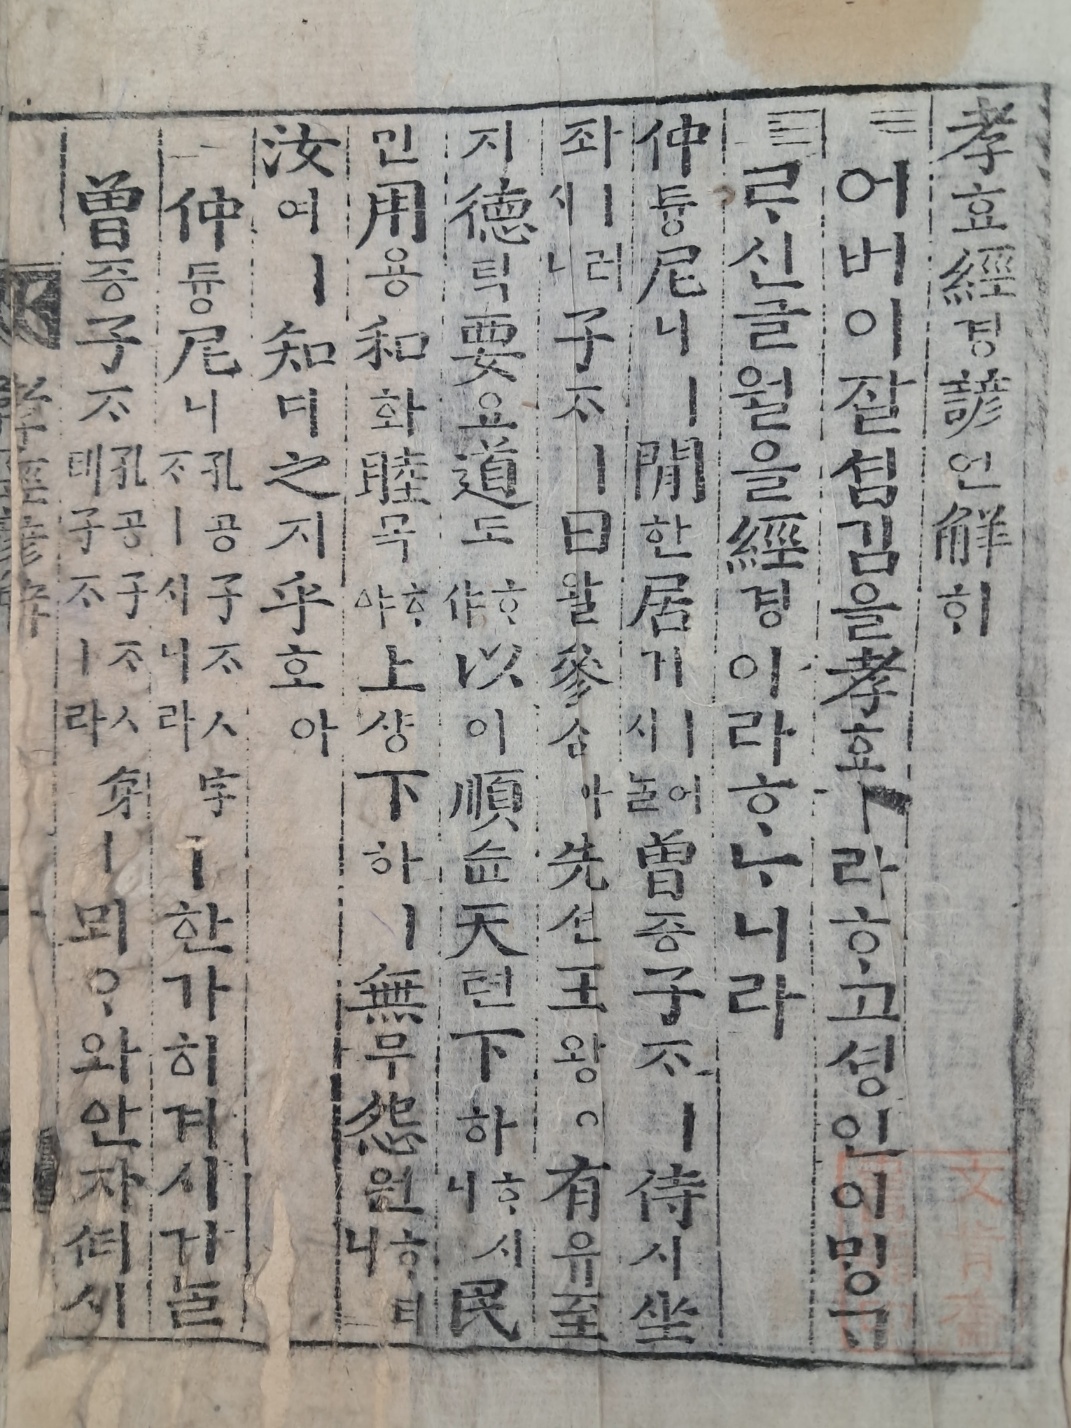 孝효經경諺언解ᄒᆡ
어버이잘셤김을孝효ㅣ라ᄒᆞ고셩인이ᄆᆡᆼᄀᆞ
ᄅᆞ신글월을經경이라ᄒᆞᄂᆞ니라
仲듕尼니ㅣ閒한居거ㅣ어시ᄂᆞᆯ曾증子ᄌᆞㅣ侍시坐
좌ㅣ러시니子ᄌᆞㅣ曰왈參ᄉᆞᆷ아先션王왕ㅇ有유至
지德덕要요道도ᄒᆞ야以이順슌天텬下하ᄒᆞ시니民
민用용和화睦목ᄒᆞ야上샹下하ㅣ無무怨원ᄒᆞ더니
汝여ㅣ知디之지乎호아
仲듕尼니孔공子ᄌᆞㅅ字ᄌᆞㅣ시니라ㅣ한가히겨시거ᄂᆞᆯ
曾증子ᄌᆞ孔공子ᄌᆞㅅ弟뎨子ᄌᆞㅣ라ㅣ뫼ᄋᆞ와안자셔시